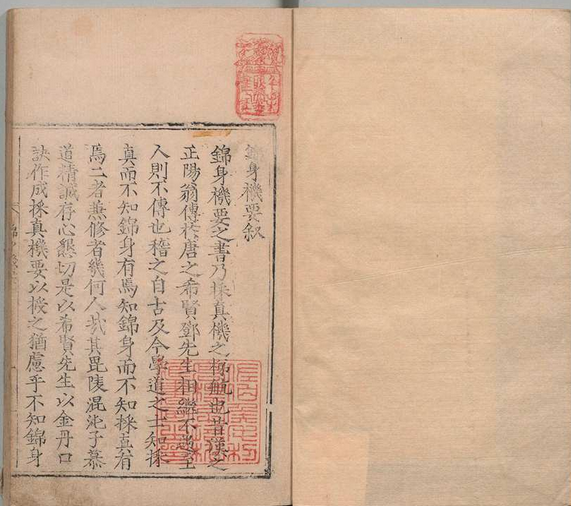 錦身機要叙
錦身機要之書乃採真機之梯航也昔漢之
正陽翁傳於唐之希賢鄧先生相繼不遇至
人則不傳也稽之自古及今學道之士知採
真而不知錦身有焉知錦身而不知採真有
焉二者兼修者幾何人哉其毘陵混沌子慕
道精誠存心懇切是以希賢先生以金丹口
訣作成採真機要以授之猶慮乎不知錦身